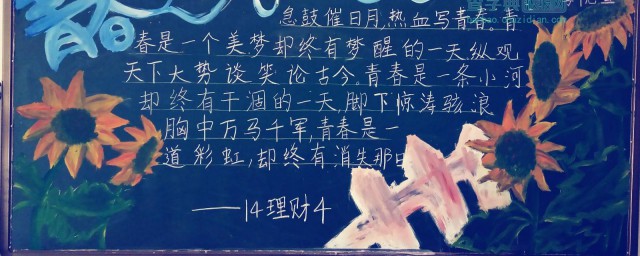 青春
急鼓催日月,热血写青春。青
春是一个美梦却终有梦醒的一天纵观
天下大势谈笑论古今.青春是一条小河
却终有干涸的一天,脚下惊涛骇浪
胸中万马千军,青春是一
道彩虹,却终有消失那日
——14理财4